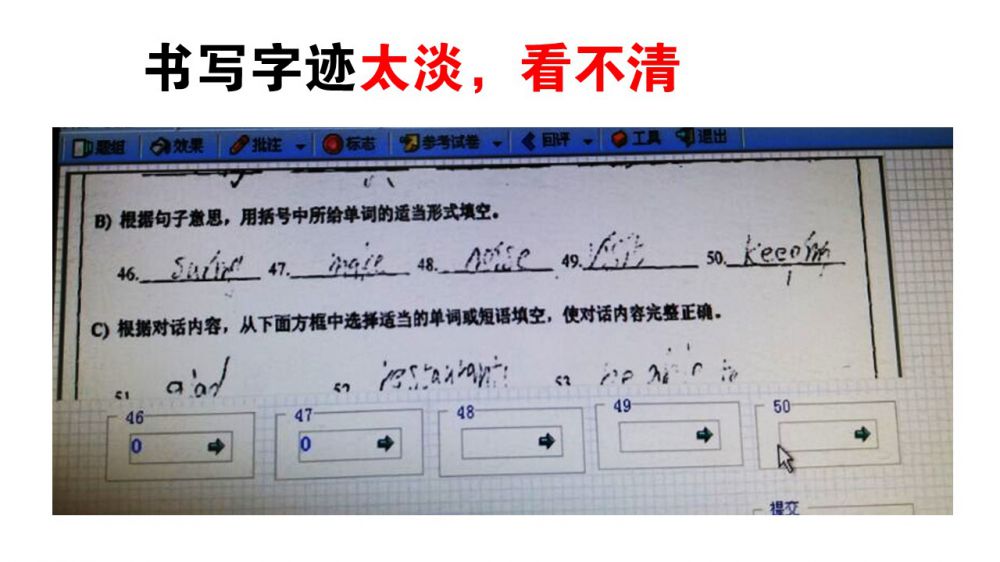 书写字迹太淡，看不清
题组 效果 批注 标志 参考试卷 回评 工具 退出
B) 根据句子意思，用括号中所给单词的适当形式填空。
46. 47. 48. noise 49. 50.
C) 根据对话内容，从下面方框中选择适当的单词或短语填空，使对话内容完整正确。
51 52 53
46 47 48 49 50
0 0
提交